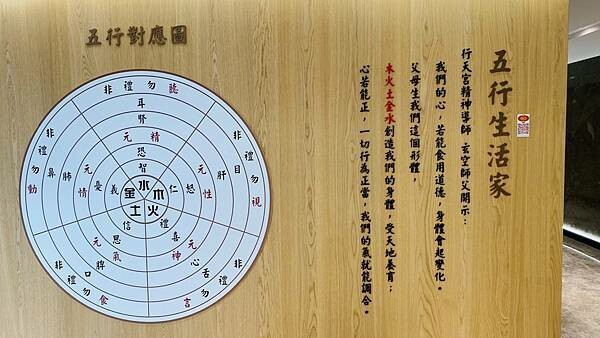 五行對應圖
非禮勿聽
耳
腎
元精
恐
智
水
非禮勿視
目
肝
元性
怒
仁
木
非禮勿言
舌
心
元神
喜
禮
火
非禮勿食
口
脾
元氣
思
信
土
非禮勿動
鼻
肺
元情
憂
義
金
五行生活家
行天宮精神導師 玄空師父開示：
我們的心，若能食用道德，身體會起變化。
父母生我們這個形體，
木火土金水創造我們的身體，受天地養育；
心若能正，一切行為正當，我們的氣就能調合。